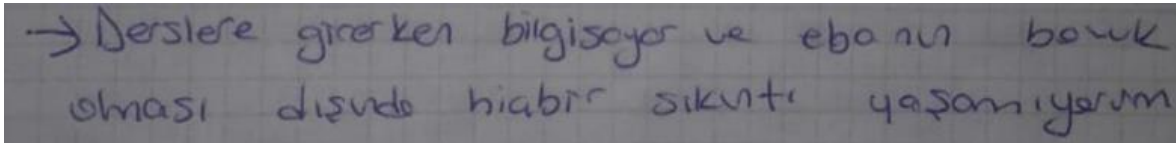 → Derslere girerken bilgisayar ve ebanın bozuk
olması dışında hiçbir sıkıntı yaşamıyorum